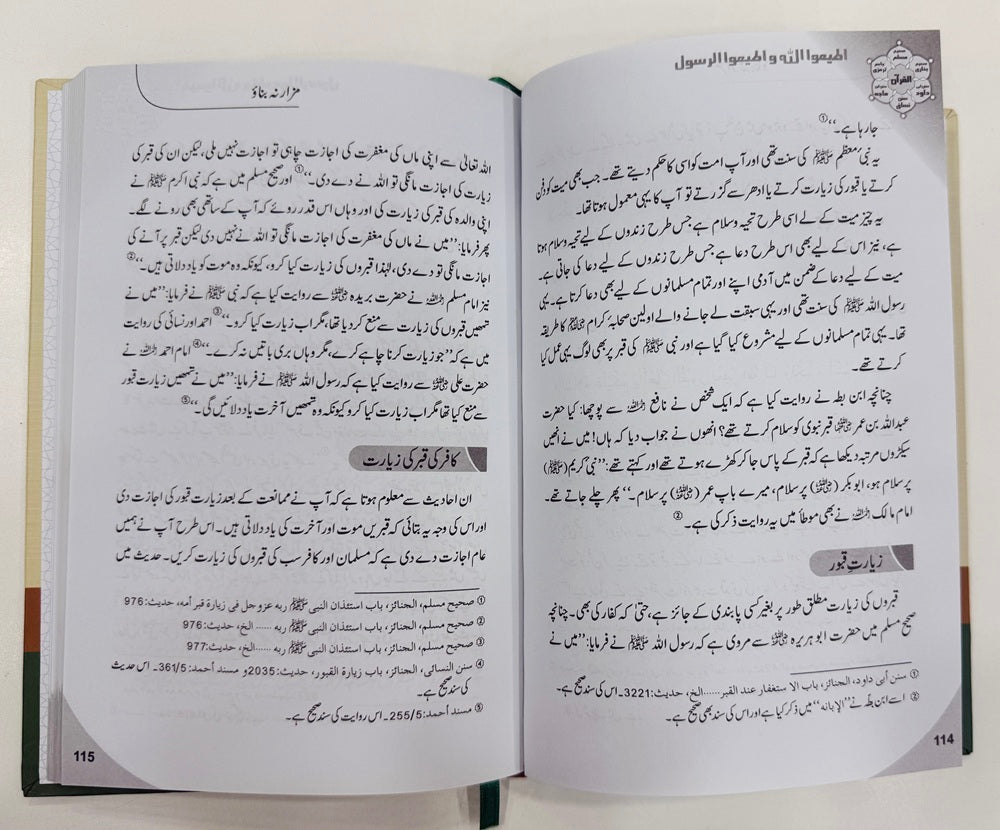 اطیعوا اللہ و اطیعوا الرسول
صحیح مسلم
صحیح بخاری
جامع ترمذی
القرآن
سنن داود
سنن ماجہ
سنن نسائی
جا رہا ہے۔‘‘①
یہ نبیٔ معظم ﷺ کی سنت تھی اور آپ امت کو اسی کا حکم دیتے تھے۔ جب بھی میت کو دفن
کرتے یا قبور کی زیارت کرتے یا ادھر سے گزرتے تو آپ کا یہی معمول ہوتا تھا۔
یہ چیز میت کے لے اسی طرح تحیہ وسلام ہے جس طرح زندوں کے لیے تحیہ وسلام ہوتا
ہے، نیز اس کے لیے بھی اس طرح دعا ہے جس طرح زندوں کے لیے دعا کی جاتی ہے۔
میت کے لیے دعا کے ضمن میں آدمی اپنے اور تمام مسلمانوں کے لیے بھی دعا کرتا ہے۔ یہی
رسول اللہ ﷺ کی سنت تھی اور یہی سبقت لے جانے والے اولین صحابۂ کرام ﷢ کا طریقہ
تھا۔ یہی تمام مسلمانوں کے لیے مشروع کیا گیا ہے اور نبی ﷺ کی قبر پر بھی لوگ یہی عمل کیا
کرتے تھے۔
چنانچہ ابن بطہ نے روایت کیا ہے کہ ایک شخص نے نافع رحمہ اللہ سے پوچھا: کیا حضرت
عبداللہ بن عمر رضی اللہ عنہما قبر نبوی کو سلام کرتے تھے؟ انھوں نے جواب دیا کہ ہاں! میں نے انھیں
سیکڑوں مرتبہ دیکھا ہے کہ قبر کے پاس جا کر کھڑے ہوتے تھے اور کہتے تھے: ’’نبیٔ کریم (ﷺ)
پر سلام ہو، ابوبکر (رضی اللہ عنہ) پر سلام، میرے باپ عمر (رضی اللہ عنہ) پر سلام۔‘‘ پھر چلے جاتے تھے۔
امام مالک رحمہ اللہ نے بھی موطأ میں یہ روایت ذکر کی ہے۔②
زیارتِ قبور
قبروں کی زیارت مطلق طور پر بغیر کسی پابندی کے جائز ہے، حتیٰ کہ کفار کی بھی۔ چنانچہ
صحیح مسلم میں حضرت ابوہریرہ رضی اللہ عنہ سے مروی ہے کہ رسول اللہ ﷺ نے فرمایا: ’’میں نے
① سنن أبی داود، الجنائز، باب الاستغفار عند القبر......الخ، حدیث:3221۔ اس کی سند صحیح ہے۔
② اسے ابن بطہ نے ’’الإبانہ‘‘ میں ذکر کیا ہے اور اس کی سند بھی صحیح ہے۔
114
مزار نہ بناؤ
اللہ تعالیٰ سے اپنی ماں کی مغفرت کی اجازت چاہی تو اجازت نہیں ملی، لیکن ان کی قبر کی
زیارت کی اجازت مانگی تو اللہ نے دے دی۔‘‘① اور صحیح مسلم میں ہے کہ نبی اکرم ﷺ نے
اپنی والدہ کی قبر کی زیارت کی اور وہاں اس قدر روئے کہ آپ کے ساتھی بھی رونے لگے۔
پھر فرمایا: ’’میں نے ماں کی مغفرت کی اجازت مانگی تو اللہ نے نہیں دی لیکن قبر پر آنے کی
اجازت مانگی تو دے دی، لہٰذا قبروں کی زیارت کیا کرو، کیونکہ وہ موت کو یاد دلاتی ہیں۔‘‘②
نیز امام مسلم رحمہ اللہ نے حضرت بریدہ رضی اللہ عنہ سے روایت کیا ہے کہ نبی ﷺ نے فرمایا: ’’میں نے
تمھیں قبروں کی زیارت سے منع کر دیا تھا، مگر اب زیارت کیا کرو۔‘‘③ احمد اور نسائی کی روایت
میں ہے کہ ’’جو زیارت کرنا چاہے کرے، مگر وہاں بری باتیں نہ کرے۔‘‘④ امام احمد رحمہ اللہ نے
حضرت علی رضی اللہ عنہ سے روایت کیا ہے کہ رسول اللہ ﷺ نے فرمایا: ’’میں نے تمھیں زیارت قبور
سے منع کیا تھا مگر اب زیارت کیا کرو کیونکہ وہ تمھیں آخرت یاد دلائیں گی۔‘‘⑤
کافر کی قبر کی زیارت
ان احادیث سے معلوم ہوتا ہے کہ آپ نے ممانعت کے بعد زیارت قبور کی اجازت دی
اور اس کی وجہ یہ بتائی کہ قبریں موت اور آخرت کی یاد دلاتی ہیں۔ اس طرح آپ نے ہمیں
عام اجازت دے دی ہے کہ مسلمان اور کافر سب کی قبروں کی زیارت کریں۔ حدیث میں
① صحیح مسلم، الجنائز، باب استئذان النبی ﷺ ربه عزوجل فی زیارة قبر أمه، حدیث: 976
② صحیح مسلم، الجنائز، باب استئذان النبی ﷺ ربه ...... الخ، حدیث: 976
③ صحیح مسلم، الجنائز، باب استئذان النبی ﷺ ربه ......الخ، حدیث:977
④ سنن النسائی، الجنائز، باب زیارة القبور، حدیث:2035و مسند أحمد:361/5۔ اس حدیث
کی سند صحیح ہے۔
⑤ مسند أحمد:255/5۔ اس روایت کی سند صحیح ہے۔
115